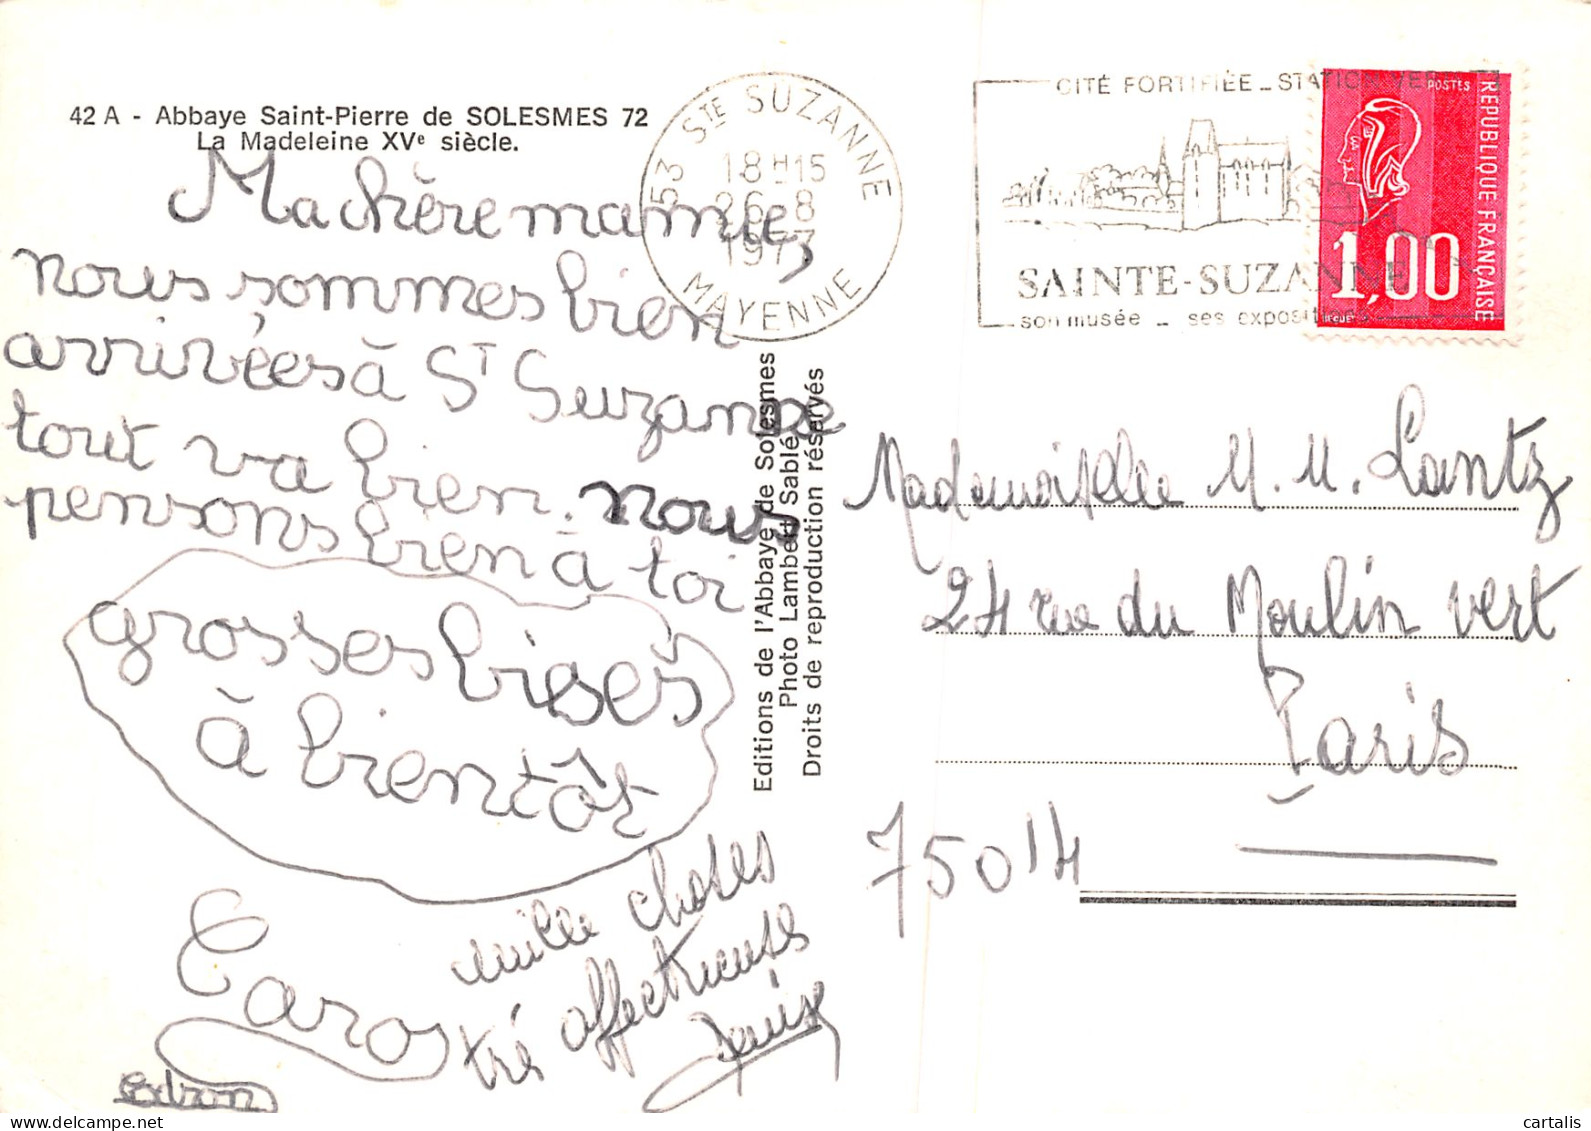 42 A - Abbaye Saint-Pierre de SOLESMES 72
La Madeleine XVe siècle.
Ma chère mamie,
nous sommes bien
arrivées à ST Suzanne
tout va bien. nous
pensons bien à toi
grosses bises
à bientôt
Caro
mille choses
très affectueuses
Denise
53 STE SUZANNE
18H15
26-8
1977
MAYENNE
CITÉ FORTIFIÉE _ STATION VERTE
SAINTE-SUZANNE
son musée _ ses expositions
POSTES
REPUBLIQUE FRANÇAISE
1,00
BEQUET
Editions de l'Abbaye de Solesmes
Photo Lambert Sablé
Droits de reproduction réservés
Mademoiselle M. M. Lantz
24 rue du Moulin vert
Paris
75014
cartalis
delcampe.net